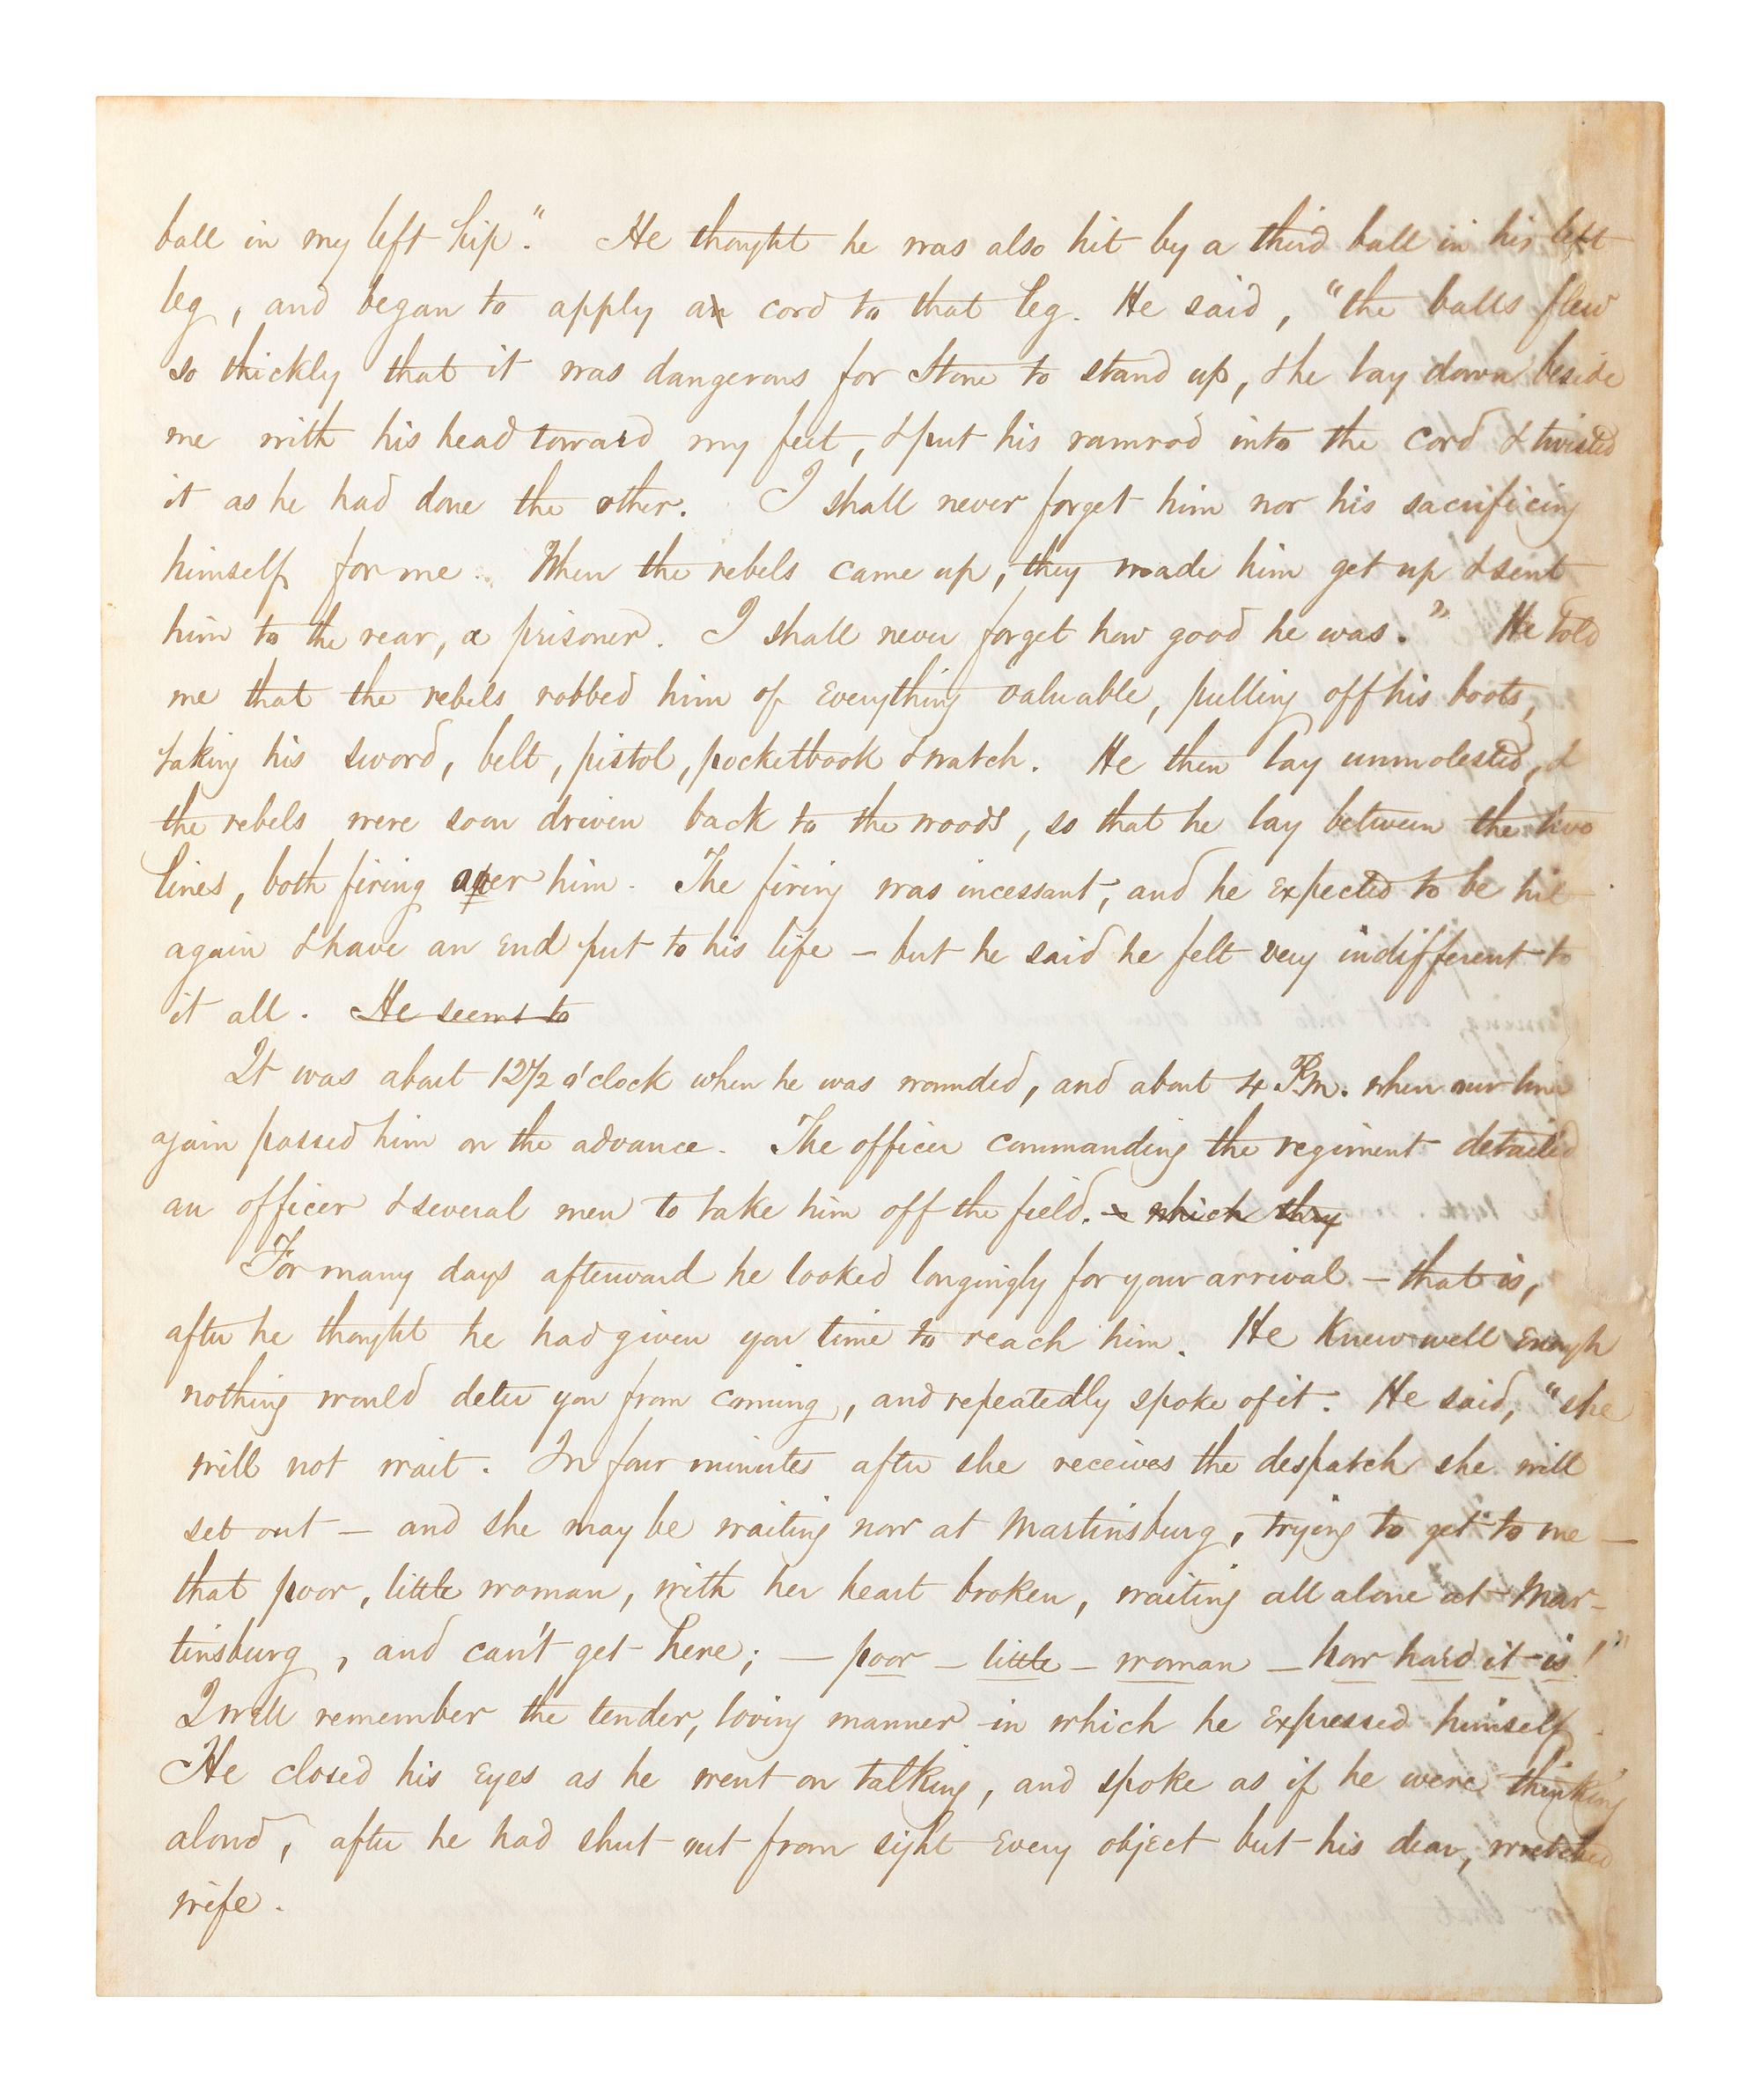 ball in my left hip." He thought he was also hit by a third ball in his left
leg, and began to apply a cord to that leg. He said, "the balls flew
so thickly that it was dangerous for Stone to stand up, & he lay down beside
me with his head toward my feet, & put his ramrod into the cord & twisted
it as he had done the other. I shall never forget him nor his sacrificing
himself for me. When the rebels came up, they made him get up & sent
him to the rear, a prisoner. I shall never forget how good he was." He told
me that the rebels robbed him of everything valuable, pulling off his boots,
taking his sword, belt, pistol, pocketbook & watch. He then lay unmolested, &
the rebels were soon driven back to the woods, so that he lay between the two
lines, both firing over him. The firing was incessant, and he expected to be hit
again & have an end put to his life – but he said he felt very indifferent to
it all. He seems to
It was about 12½ o'clock when he was wounded, and about 4 P.M. when our line
again passed him on the advance. The officer commanding the regiment detailed
an officer & several men to take him off the field. which they
For many days afterward he looked longingly for your arrival – that is,
after he thought he had given you time to reach him. He knew well enough
nothing would deter you from coming, and repeatedly spoke of it. He said, "she
will not wait. In four minutes after she receives the despatch she will
set out – and she may be waiting now at Martinsburg, trying to get to me –
that poor, little woman, with her heart broken, waiting all alone at Mar-
tinsburg, and can't get here; – poor – little – woman – how hard it is!"
I will remember the tender, loving manner in which he expressed himself.
He closed his eyes as he went on talking, and spoke as if he were thinking
aloud, after he had shut out from sight every object but his dear, wretched
wife.